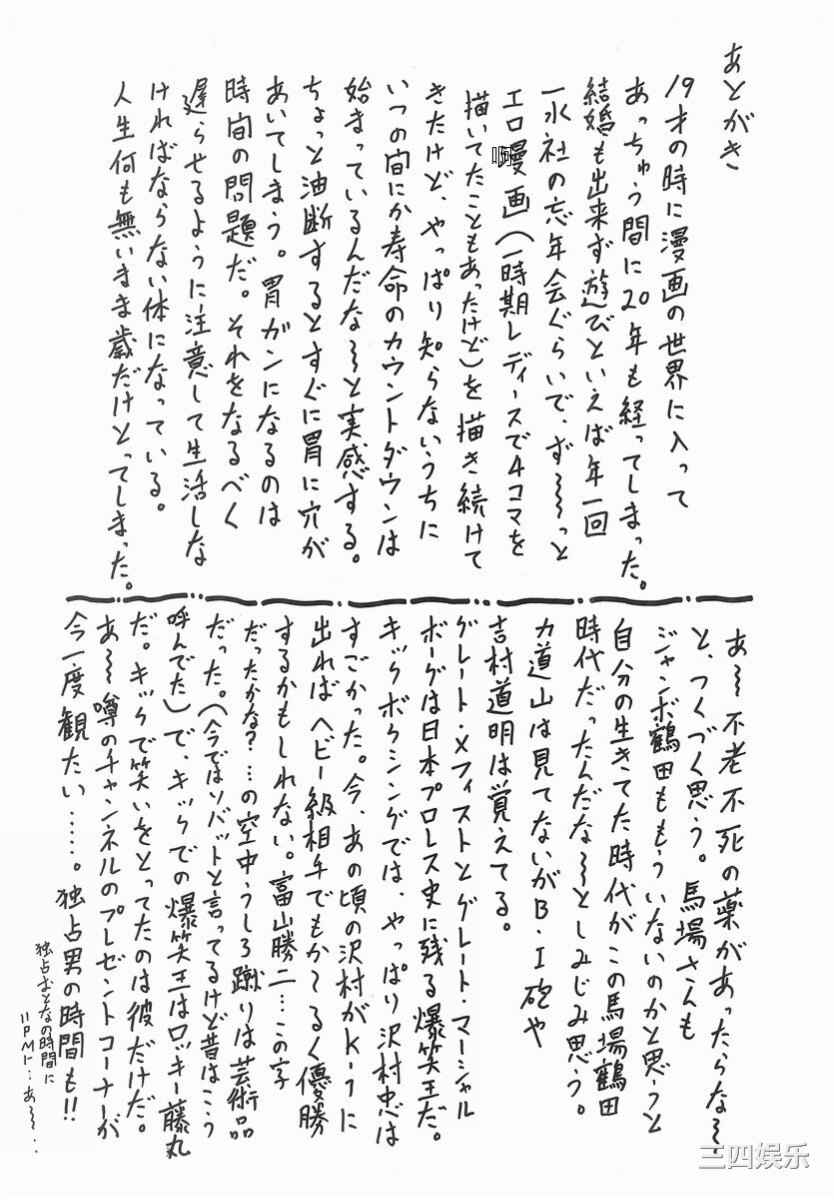 あとがき
19才の時に漫画の世界に入って
あっちゅう間に20年も経ってしまった。
結婚も出来ず遊びといえば年一回
一水社の忘年会ぐらいで、ず〜〜っと
エロ漫画(一時期レディースで4コマを
啊
描いてたこともあったけど)を描き続けて
きたけど、やっぱり知らないうちに
いつの間にか寿命のカウントダウンは
始まっているんだな〜と実感する。
ちょっと油断するとすぐに胃に穴が
あいてしまう。胃ガンになるのは
時間の問題だ。それをなるべく
遅らせるように注意して生活しな
ければならない体になっている。
人生何も無いまま歳だけとってしまった。
あ〜不老不死の薬があったらな〜
と、つくづく思う。馬場さんも
ジャンボ鶴田ももういないのかと思うと
自分の生きてた時代がこの馬場鶴田
時代だったんだな〜としみじみ思う。
力道山は見てないがB・I砲や
吉村道明は覚えてる。
グレート・メフィストとグレート・マーシャル
ボーグは日本プロレス史に残る爆笑王だ。
キックボクシングでは、やっぱり沢村忠は
すごかった。今、あの頃の沢村がK-1に
出ればヘビー級相手でもかてるく優勝
するかもしれない。富山勝二…この字
だったかな?…の空中うしろ蹴りは芸術品
だった。(今ではソバットと言ってるけど昔はこう
呼んでた)で、キックでの爆笑王はロッキー藤丸
だ。キックで笑いをとってたのは彼だけだ。
あ〜噂のチャンネルのプレゼントコーナーが
今一度観たい……。独占男の時間も!!
独占おとなの時間に
11PMに…あ〜〜…
三四娱乐